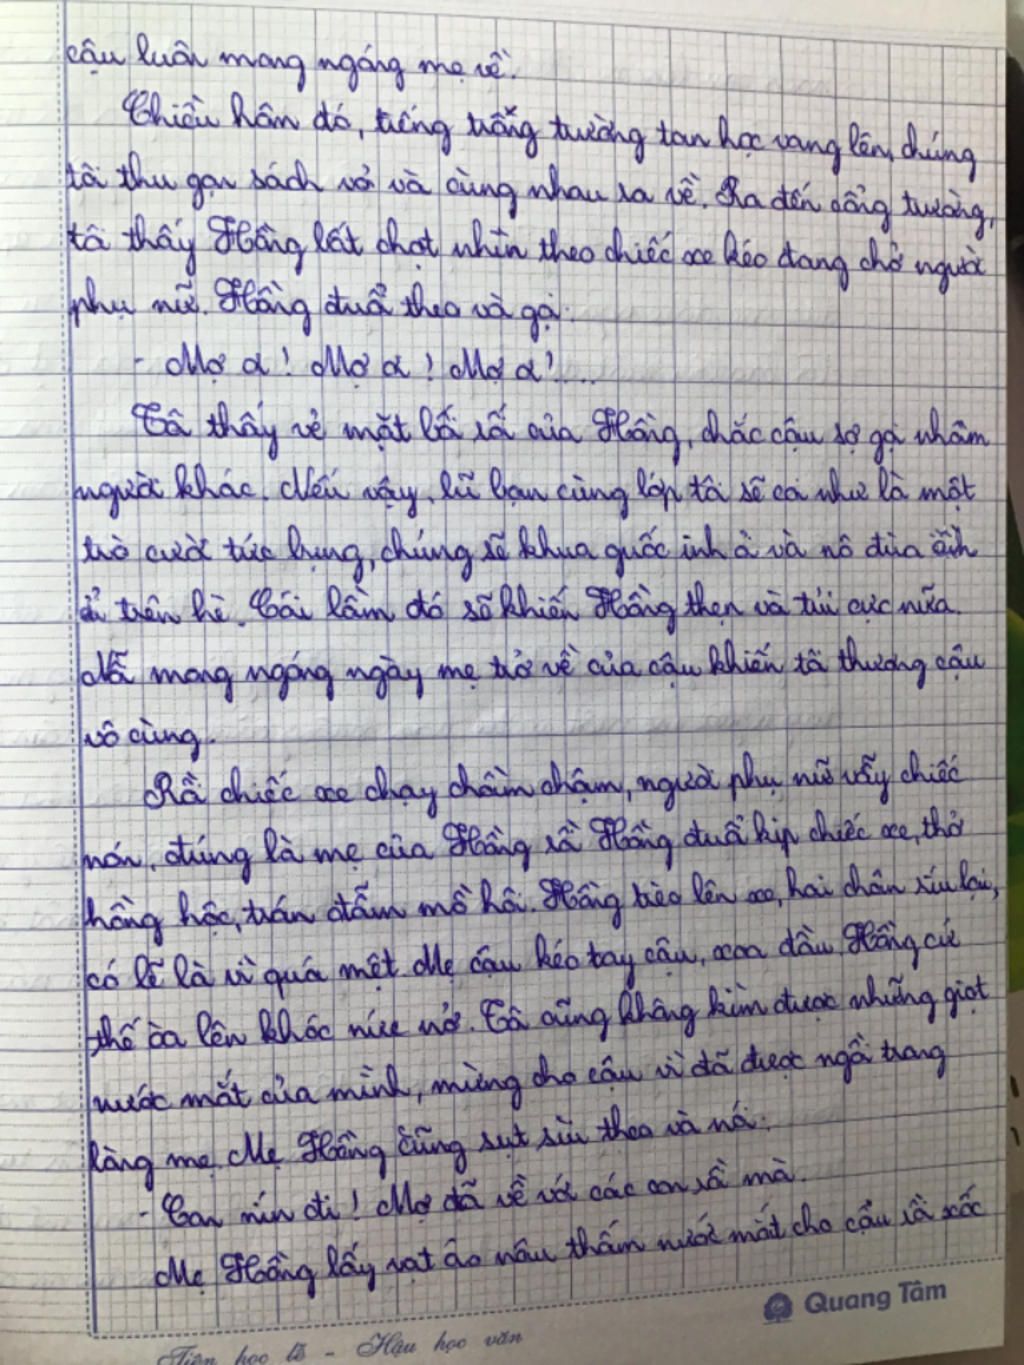 cậu luôn mong ngóng mẹ về.
Chiều hôm đó, tiếng trống trường tan học vang lên, chúng
tôi thu gọn sách vở và cùng nhau ra về. Ra đến cổng trường,
tôi thấy Hồng bất chợt nhìn theo chiếc xe kéo đang chở người
phụ nữ. Hồng đuổi theo và gọi:
- Mợ ơi! Mợ ơi! Mợ ơi!...
Tôi thấy vẻ mặt bối rối của Hồng, chắc cậu sợ gọi nhầm
người khác. Nếu vậy, lũ bạn cùng lớp tôi sẽ coi như là một
trò cười tức bụng, chúng sẽ khua guốc inh ỏi và nô đùa ầm
ĩ trên hè. Cái lầm đó sẽ khiến Hồng thẹn và tủi cực nữa.
Nỗi mong ngóng ngày mẹ trở về của cậu khiến tôi thương cậu
vô cùng.
Rồi chiếc xe chạy chầm chậm, người phụ nữ vẫy chiếc
nón, đúng là mẹ của Hồng rồi. Hồng đuổi kịp chiếc xe, thở
hồng hộc, trán đẫm mồ hôi. Hồng trèo lên xe, hai chân ríu lại,
có lẽ là vì quá mệt. Mẹ cậu kéo tay cậu, xoa đầu, Hồng cứ
thế òa lên khóc nức nở. Tôi cũng không kìm được những giọt
nước mắt của mình, mừng cho cậu vì đã được ngồi trong
lòng mẹ. Mẹ Hồng cũng sụt sùi theo và nói:
- Con nín đi! Mợ đã về với các con rồi mà.
Mẹ Hồng lấy vạt áo nâu thấm nước mắt cho cậu rồi xốc
Quang Tâm
Tiên học lễ - Hậu học văn